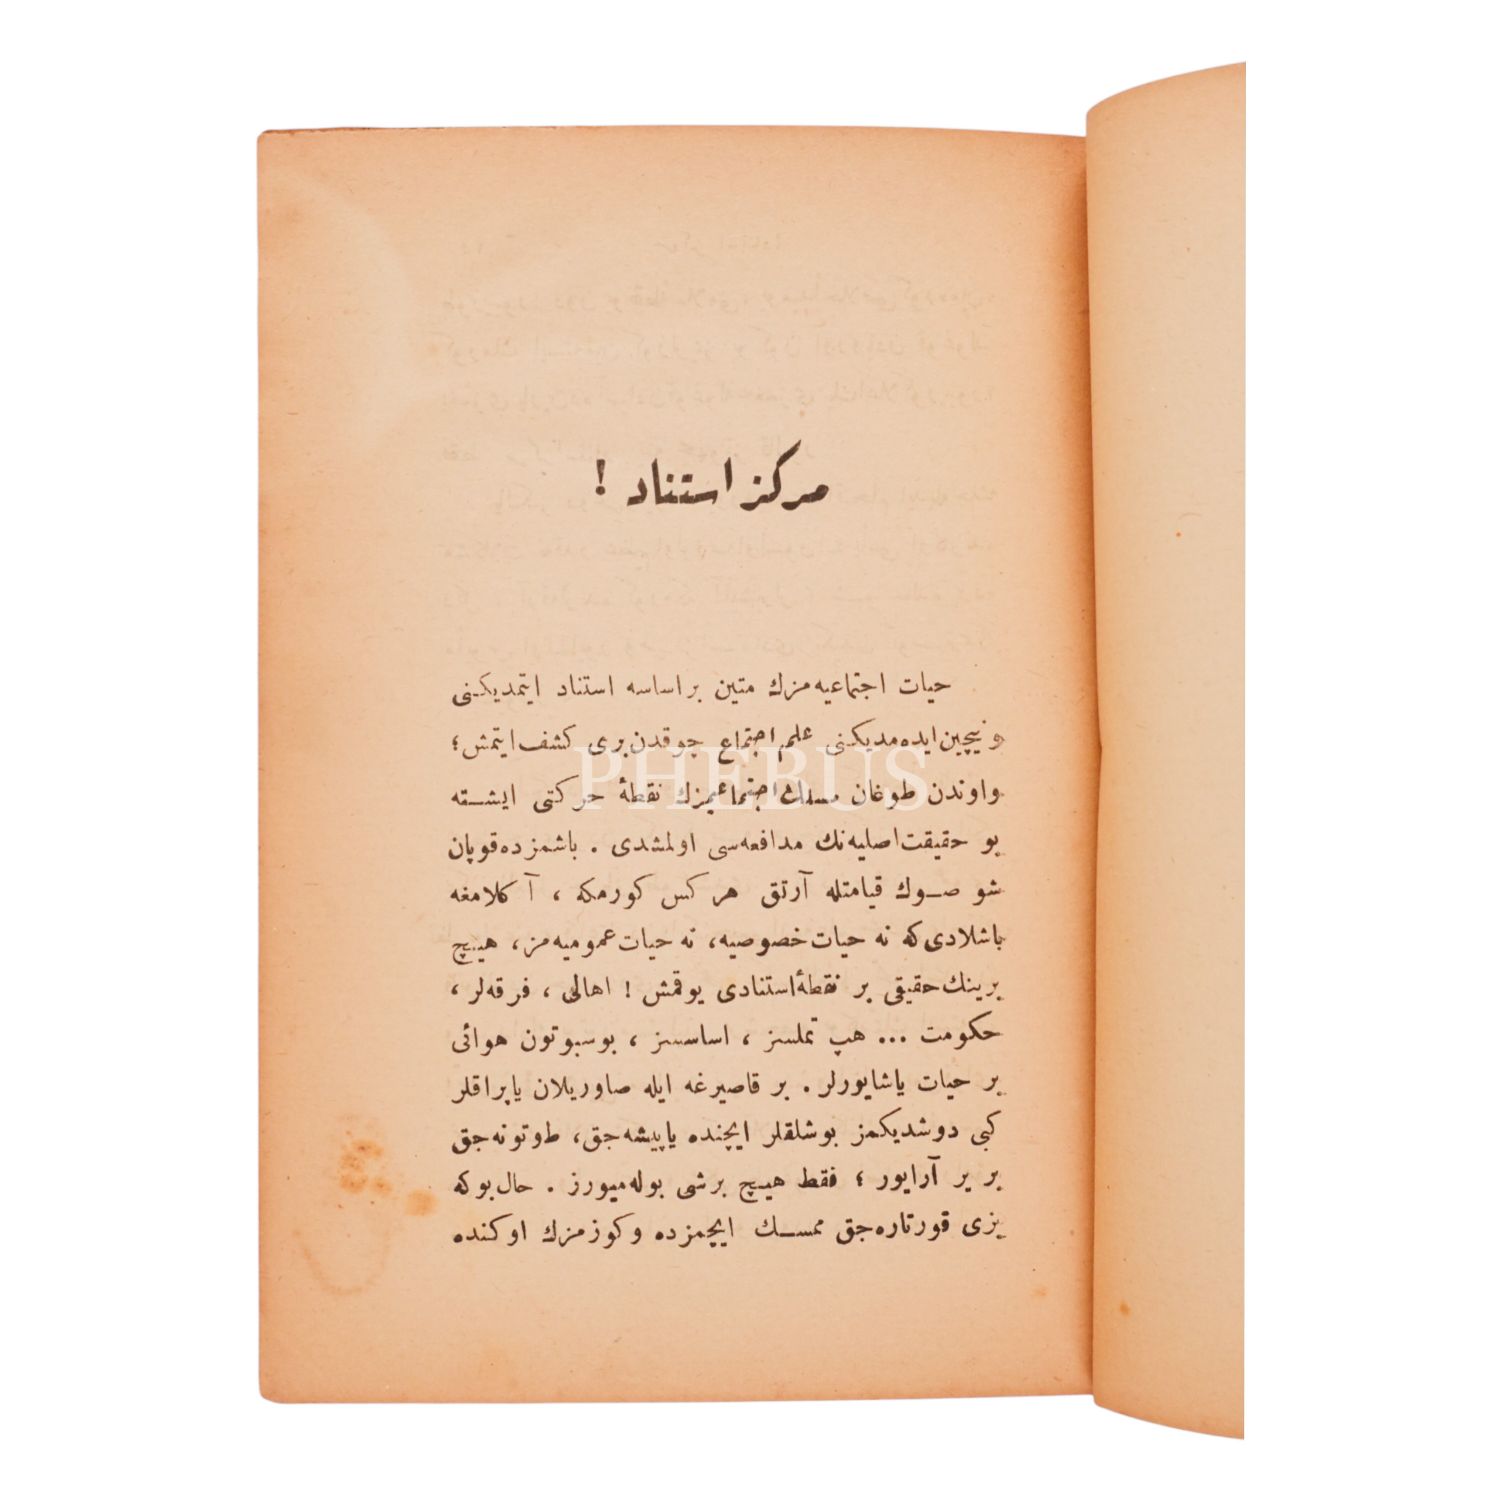 مركز استناد !
حیات اجتماعیه‌مزك متین بر اساسه استناد ایتمدیكنی
و نیچین ایده‌مدیكنی علم اجتماع چوقدن بری كشف ایتمش ؛
واوندن طوغان مسلك اجتماعیمزك نقطهٔ حركتی ایشـته
بو حقیقت اصلیه‌نك مدافعه‌سی اولمشدی . باشمزده قوپان
شو صـوك قیامتله آرتق هركس كورمكه ، آ كلامغه
باشلادی كه نه حیات خصوصیه، نه حیات عمومیه‌مز، هیچ
برینك حقیقی بر نقطهٔ استنادی یوقمش ! اهالی ، فرقه‌لر ،
حكومت ... هپ تملسز ، اساسسز ، بوسبوتون هوائی
بر حیات یاشایورلر . بر قاصیرغه ایله صاوریلان یاپراقلر
كبی دوشدیكمز بوشلقلر ایچنده یاپیشه‌جق، طوتونه‌جق
بر یر آرایور ؛ فقط هیچ برشی بوله‌میورز . حال بوكه
بزی قورتاره‌جق ممسـك ایچمزده و كوزمزك اوكنده
PHEBUS